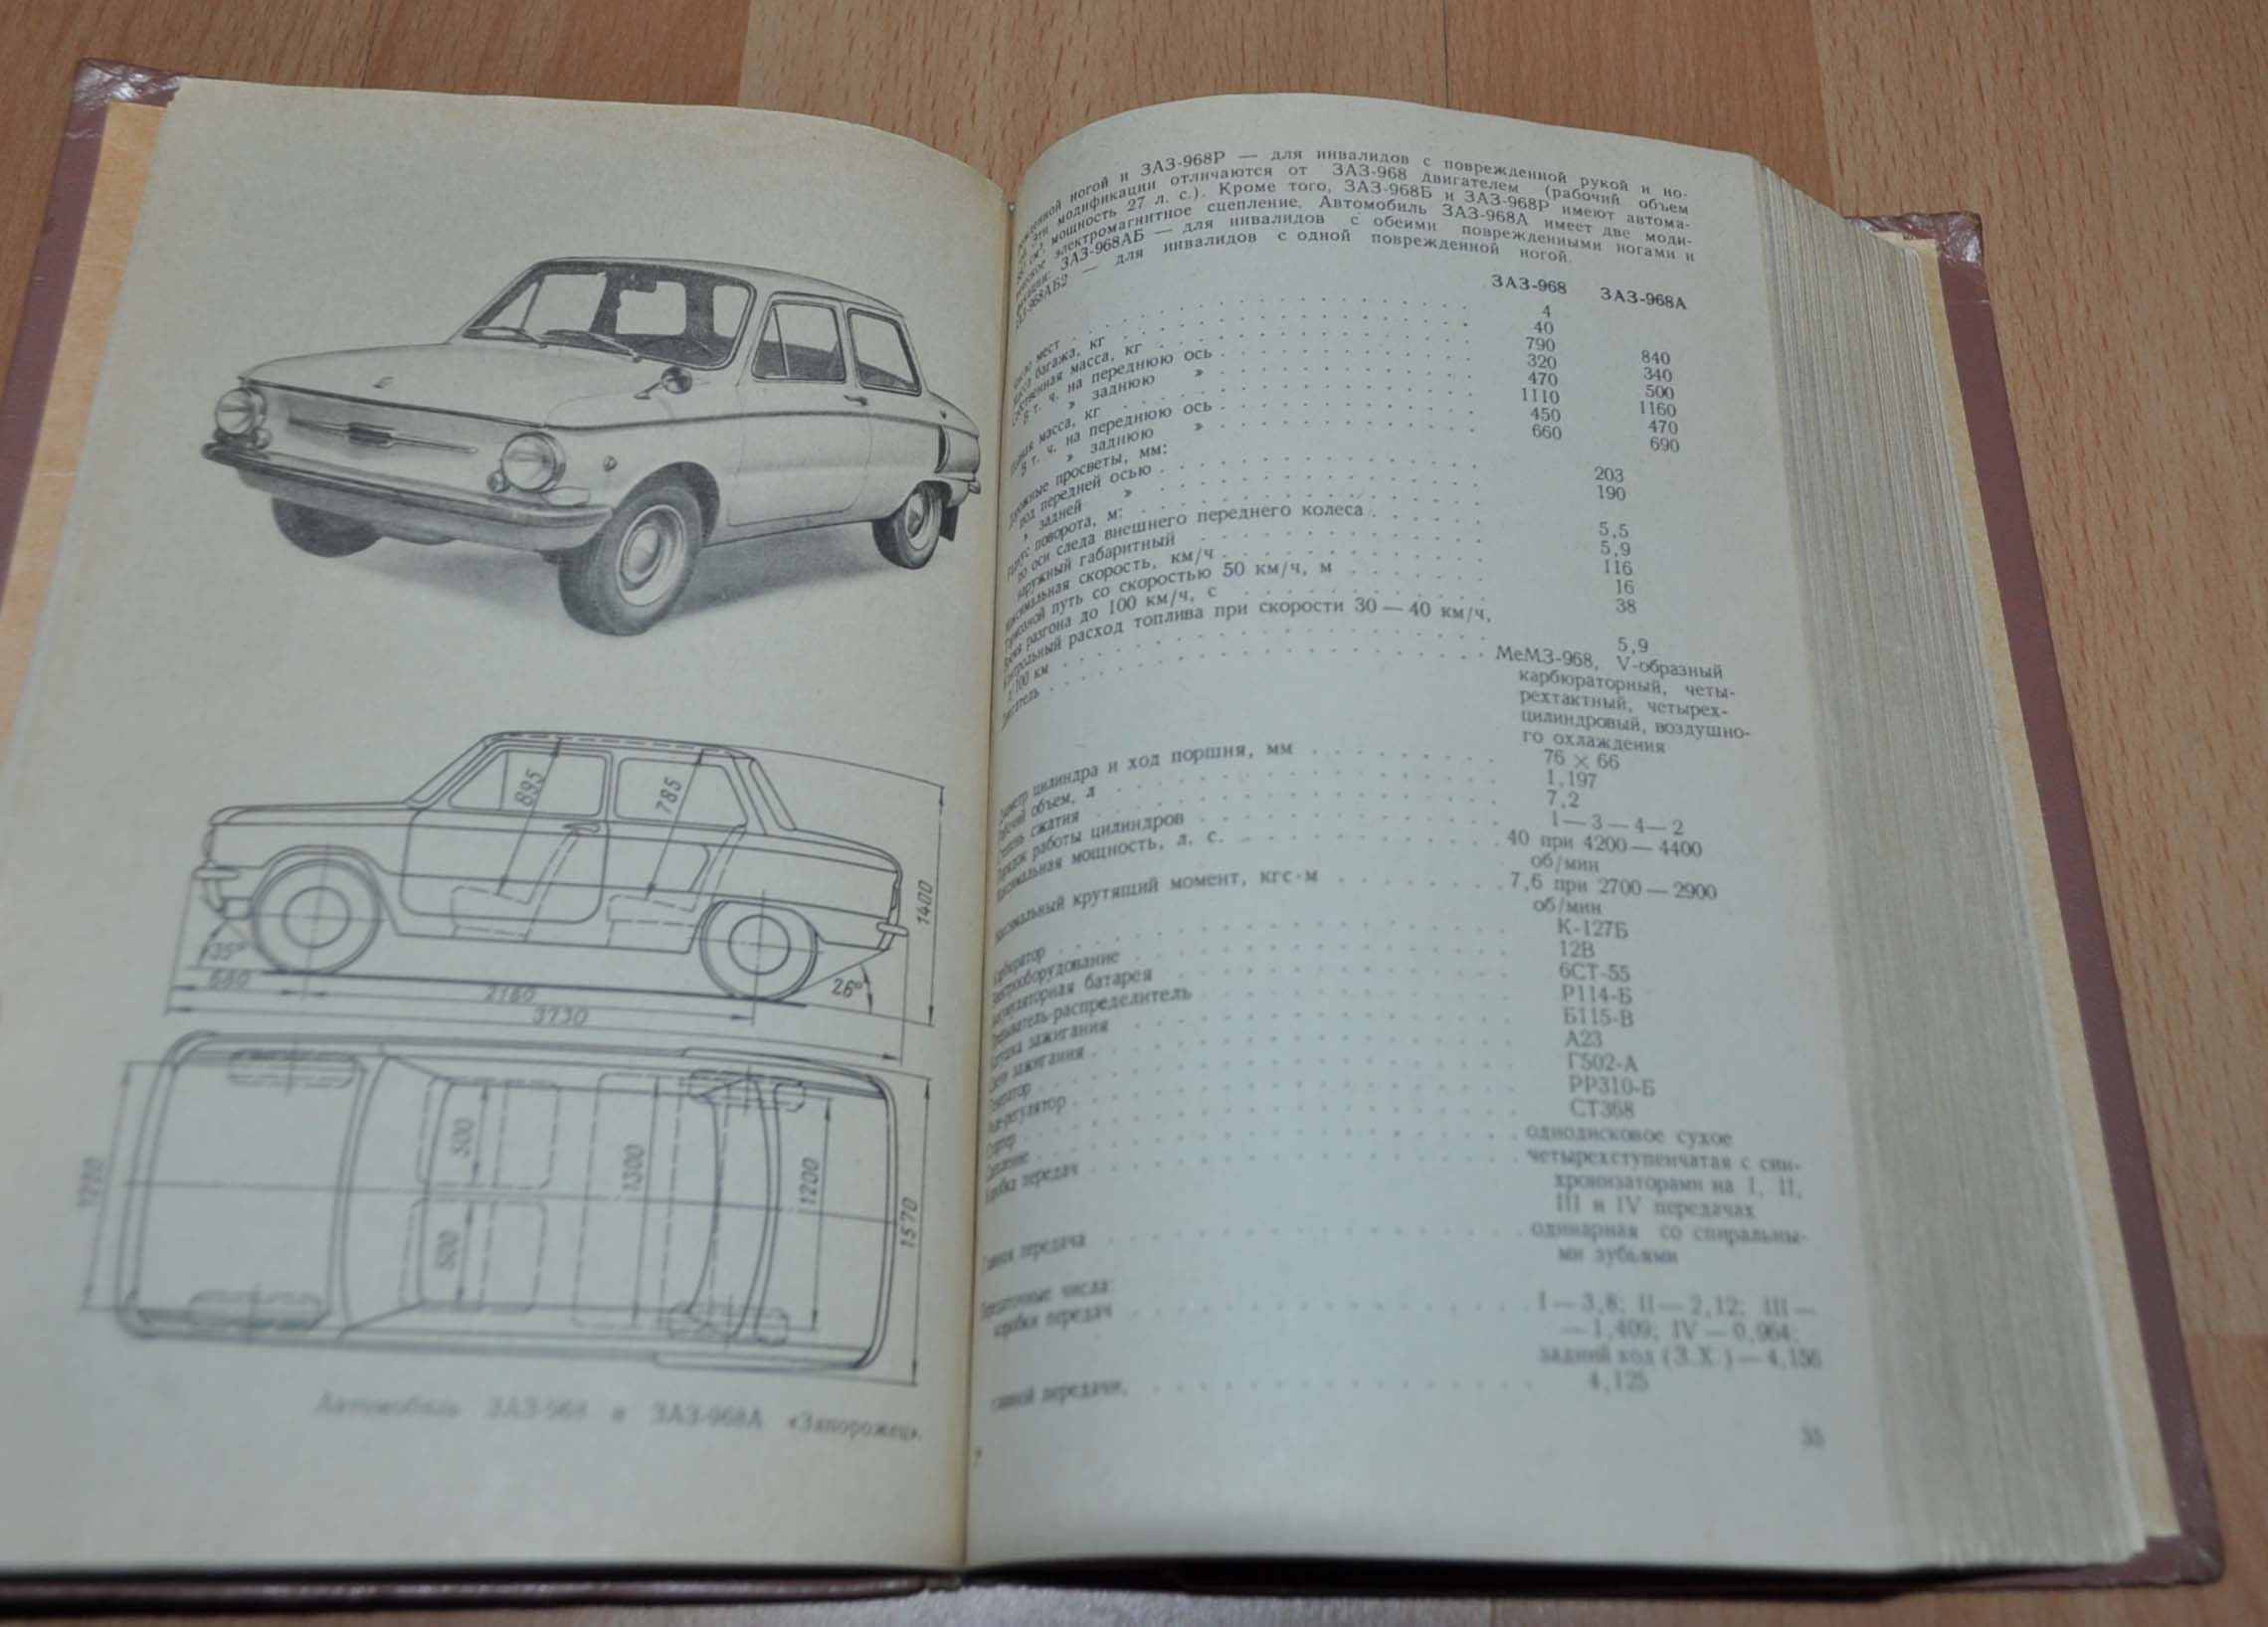 895
785
1400
35°
680
2160
26°
3730
500
1300
1200
1220
500
1570
Автомобиль ЗАЗ-968 и ЗАЗ-968А «Запорожец».
ногой и ЗАЗ-968Р — для инвалидов с поврежденной рукой и но-
Эти модификации отличаются от ЗАЗ-968 двигателем (рабочий объем
мощность 27 л. с.). Кроме того, ЗАЗ-968Б и ЗАЗ-968Р имеют автома-
электромагнитное сцепление. Автомобиль ЗАЗ-968А имеет две моди-
ЗАЗ-968АБ — для инвалидов с обеими поврежденными ногами и
ЗАЗ-968АБ2 — для инвалидов с одной поврежденной ногой.
ЗАЗ-968 ЗАЗ-968А
мест 4
багажа, кг 40
масса, кг 790 840
В т. ч. на переднюю ось 320 340
» заднюю » 470 500
масса, кг 1110 1160
В т. ч. на переднюю ось 450 470
» заднюю » 660 690
просветы, мм:
под передней осью 203
» задней » 190
поворота, м:
по оси следа внешнего переднего колеса 5,5
наружный габаритный 5,9
скорость, км/ч 116
путь со скоростью 50 км/ч, м 16
разгона до 100 км/ч, с 38
расход топлива при скорости 30—40 км/ч,
км 5,9
Двигатель МеМЗ-968, V-образный
карбюраторный, четы-
рехтактный, четырех-
цилиндровый, воздушно-
го охлаждения
цилиндра и ход поршня, мм 76 × 66
объем, л 1,197
сжатия 7,2
работы цилиндров 1—3—4—2
Максимальная мощность, л. с. 40 при 4200—4400
об/мин
Максимальный крутящий момент, кгс·м 7,6 при 2700—2900
об/мин
К-127Б
12В
батарея 6СТ-55
Р114-Б
зажигания Б115-В
зажигания А23
Г502-А
РР310-Б
СТ368
однодисковое сухое
передач четырехступенчатая с син-
хронизаторами на I, II,
III и IV передачах
передача одинарная со спиральны-
ми зубьями
числа:
коробки передач I—3,8; II—2,12; III—
—1,409; IV—0,964;
задний ход (З.Х.)—4,156
передачи, 4,125
35